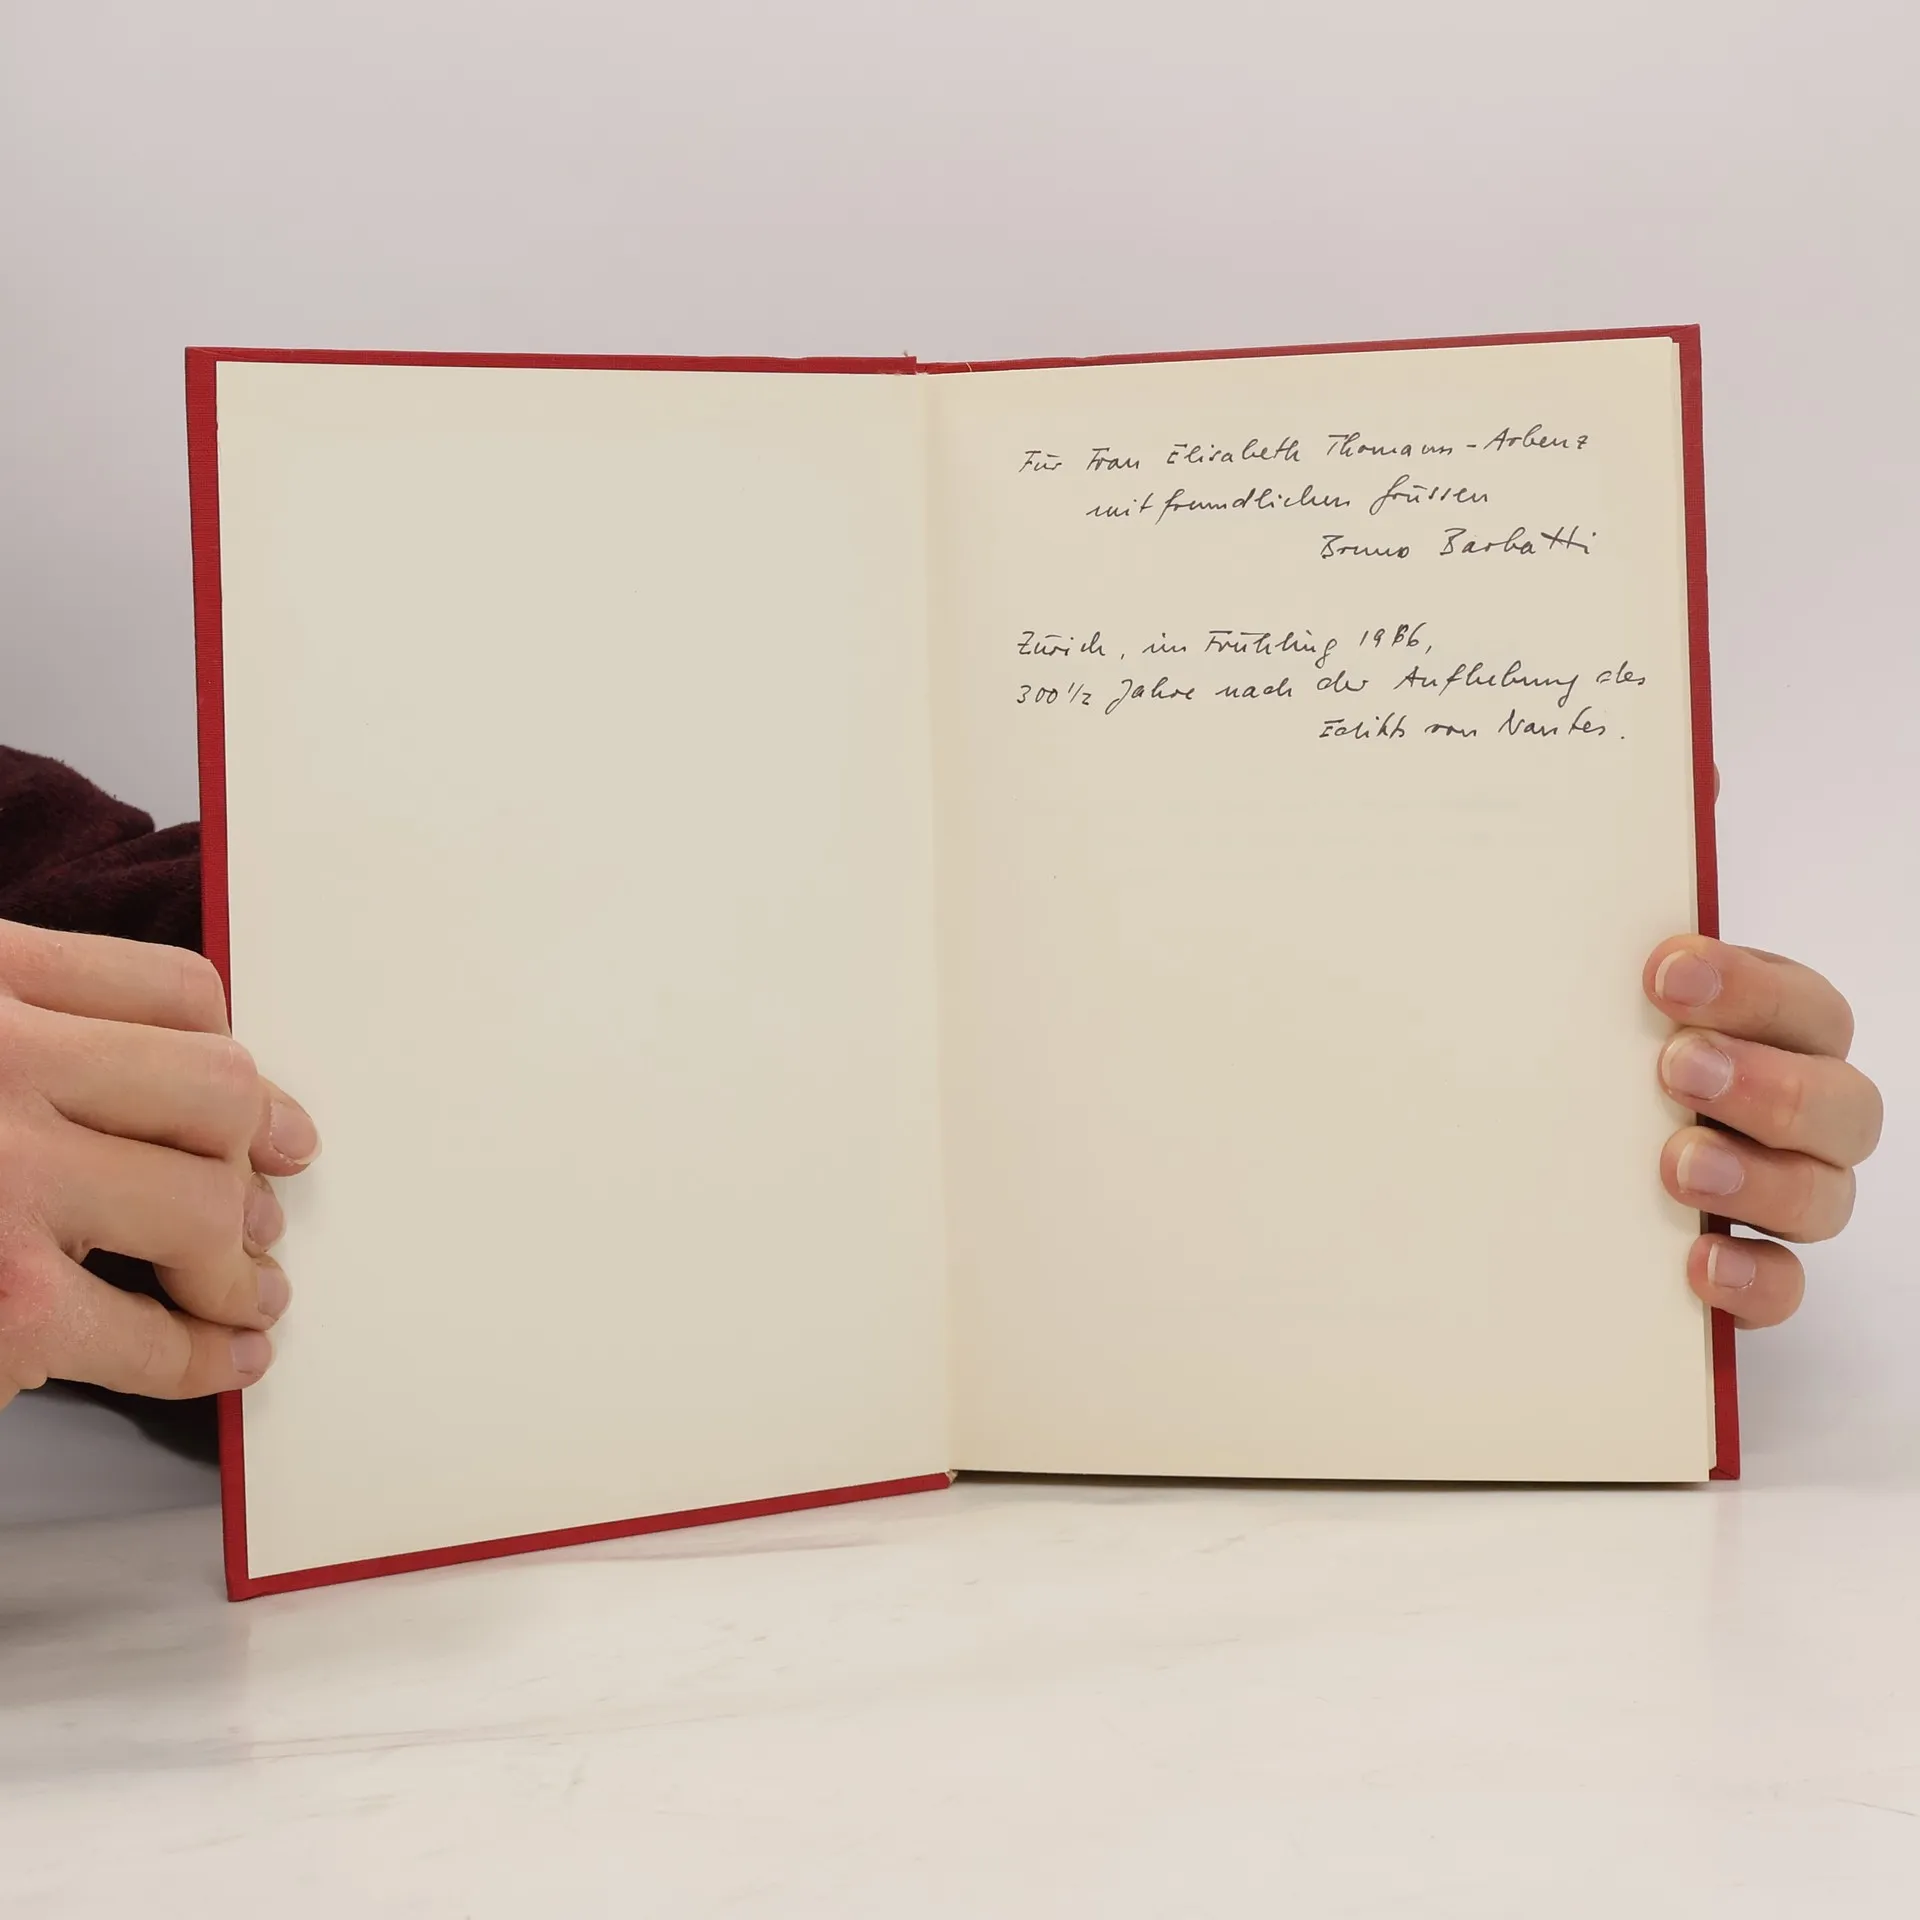 Für Frau Elisabeth Thomann-Arbenz
mit freundlichen Grüssen
Bruno Barbatti
Zürich, im Frühling 1986,
300 1/2 Jahre nach der Aufhebung des
Edikts von Nantes.